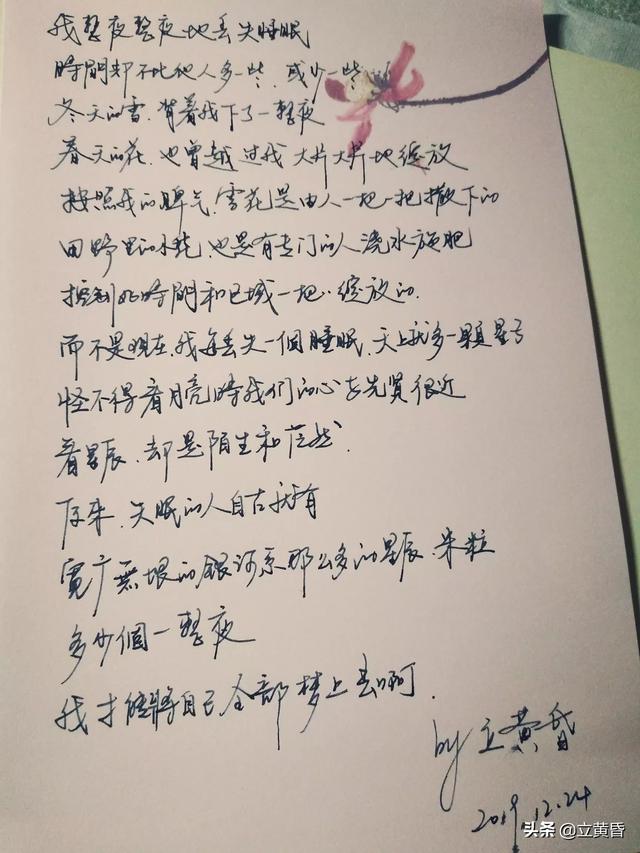 我整夜整夜地丢失睡眠
時間却不比他人多一些、或少一些
冬天的雪、背着我下了一整夜
春天的花、也曾越过我 大片大片地绽放
按照我的脾气、雪花是由人一把一把撒下的
田野里的小花、也是有专门的人浇水施肥
控制好時間和区域一把一把绽放的、
而不是現在、我每丢失一個睡眠、天上就多一顆星子
怪不得看月亮時我们的心去先贤很近
看星辰、却是陌生和茫然、
原来、失眠的人自古就有
寬广無垠的銀河系那么多的星辰、米粒
多少個一整夜
我才能将自己全部梦上去啊、
by 立黄昏
2019.12.24
头条 @立黄昏